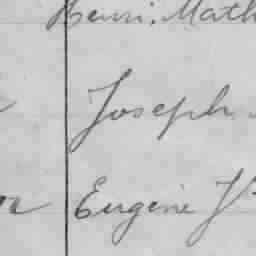 Henri. Math
Joseph
Eugène J